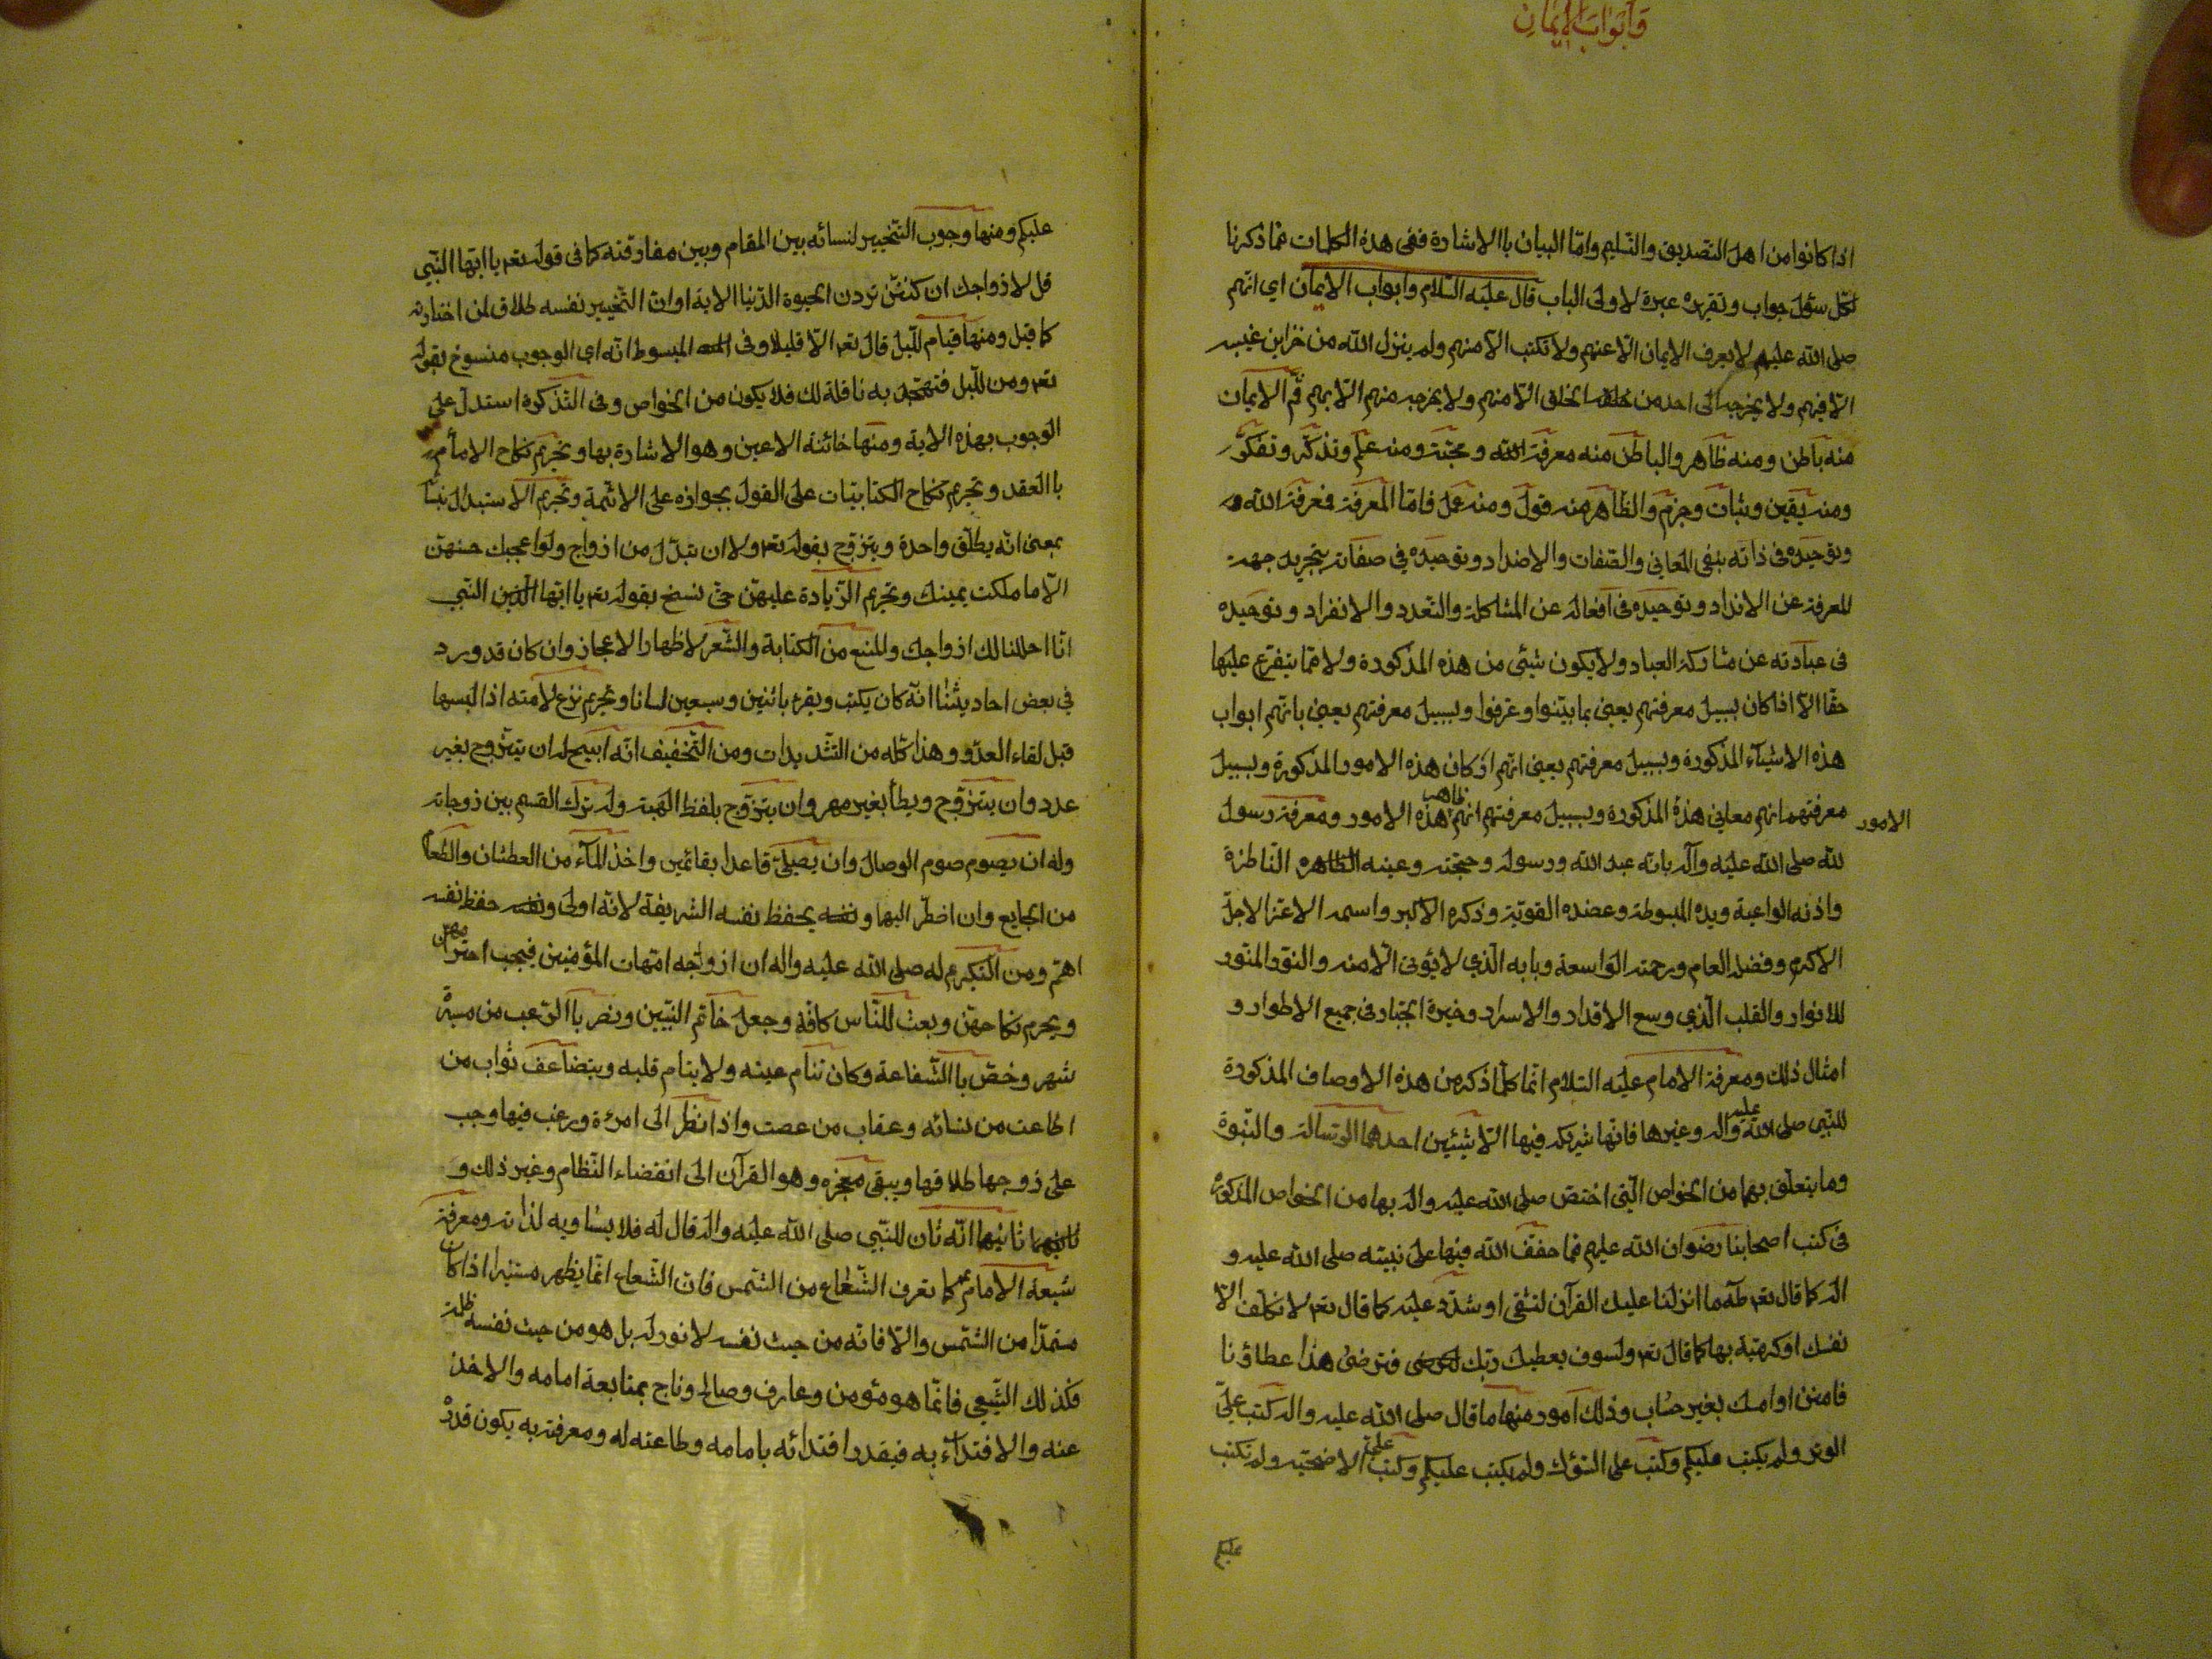 وَأَبْوَابَ الإِيمَانِ
اذا كانوا من اهل التصديق والتسليم وامّا البيان با الاشارة ففى هذه الكلمات ممّا ذكرنا
لكل سؤل جواب وتقريره عبرة لاولى الباب قال عليه السّلام وابواب الايمان اى انهم
صلى الله عليهم لا يعرف الايمان الّا عنهم ولا تكتب الّا منهم ولم ينزل الله من خزاين غيبه
الّا فيهم ولا يخرجه الى احد من الخلق الّا منهم ولا يخرجه منهم الّا بهم ثم الايمان
منه باطن ومنه ظاهر والباطن منه معرفة الله ومحبّة ومنه علم وتذكّر وتفكّر
ومنه يقين وثبات وجزم والظاهر منه قول ومنه عمل فامّا المعرفة فمعرفة الله
وتوحيده فى ذاته بنفى المعانى والصّفات والاضداد وتوحيده في صفاته بتجريد جهة
المعرفة عن الانداد وتوحيده فى افعاله عن المشاكلة والتعدد والانفراد وتوحيده
فى عبادته عن مشاركة العباد ولا يكون شئى من هذه المذكورة ولا ممّا يتفرّع عليها
حقّا الّا اذا كان بسبيل معرفتهم يعنى بما بيّنوا وعرفوا وبسبيل معرفتهم يعنى بانّهم ابواب
هذه الاشيآء المذكورة وبسبيل معرفتهم يعنى انهم اركان هذه الامور المذكورة وبسبيل
معرفتهم انهم معاني هذه المذكورة وبسبيل معرفتهم انهم ظاهر هذه الامور ومعرفة رسول
الامور
لله صلى الله عليه وآله بانه عبد الله ورسوله وحجّته وعينه النّاظرة
واذنه الواعية ويده المبسوطة وعضده القويّة وذكره الاكبر واسمه الاعزّ الاجلّ
الاكرم وفضله العام ورحمته الواسعة وبابه الّذي لا يؤتى الّا منه والنّور المنّور
للانوار والقلب الّذي وسع الاقدار والاسرار وخيرة الجبّار فى جميع الاطوار و
امثال ذلك ومعرفة الامام عليه السّلام انّما كلّما ذكر من هذه الاوصاف المذكورة
للنّبى صلى الله عليه واله وغيرها فانّها شريكه فيها الّا شيئين احدهما الرّسالة والنّبوة
وما يتعلّق بهما من الخواص الّتى اختصّ صلى الله عليه واله بها من الخواص المذكورة
فى كتب اصحابنا رضوان الله عليهم ممّا خفّف الله فيها على نبيّه صلى الله عليه و
اله كما قال تعه طه ما انزلنا عليك القرآن لتشقى او شدّد عليه كما قال تعه لا تكلّف الّا
نفسك او كرمّته بها كما قال تعه ولسوف يعطيك ربّك فترضى هذا عطاؤنا
فامنن او امسك بغير حساب وذلك امور منها ما قال صلى الله عليه واله كتب علىّ
الوتر ولم يكتب عليكم وكتب على السّؤك ولم يكتب عليكم وكتب علىّ الاضحيّه ولم تكتب
عليكم
عليكم ومنها وجوب التّخيير لنسائه بين المقام وبين مفارقته كما فى قوله تعه يا ايّها النّبى
قل لازواجك ان كنتنّ تردن الحيوة الدّنيا الاية اوانّ التّخيير نفسه طلاق لمن اختارته
كما قيل ومنها قيام اللّيل قال تعه الّا قليلا وفى المبسوط انّه اى الوجوب منسوخ بقوله
تعه ومن اللّيل فتهجّد به نافلة لك فلا يكون من الخواص وفى التّذكرة استدلّ على
الوجوب بهذه الاية ومنها خائنة الاعين وهو الاشارة بها وتحريم نكاح الامآء
با العقد وتحريم نكاح الكتابيّات على القول بجوازه على الائمة وتحريم الاستبدال بنسآئه
بمعنى انّه يطلّق واحدة ويتزوّج بقوله تعه ولا ان تبدّل من ازواج ولو اعجبك حسنهنّ
الّا ما ملكت يمينك وتحريم الزّيادة عليهنّ حتى نسخ بقوله تعه يا ايّها النّبى
انّا احللنا لك ازواجك والمنع من الكتابة والشّعر لاظهار الاعجاز وان كان قد ورد
في بعض احاديثنا انّه كان يكتب ويقرء باثنين وسبعين لسانا وتحريم نزع لامته اذا البسها
قبل لقاء العدّو وهذا كلّه من التشديدات ومن التّخفيف انّه ابيح له ان يتزّوج بغير
عدد وان يتزوّج ويطأ بغير مهر وان يتزوّج بلفظ الهبة وله ترك القسم بين زوجاته
وله ان يصوم صوم الوصال وان يصلىّ قاعدا بقائمين واخذ المآء من العطشان والطّعام
من الجايع وان اضطرّ اليها و يحفظ نفسه الشريفة لانّه اولى و حفظ نفسه
اهمّ ومن التّكريم له صلى الله عليه واله ان ازواجه امّهات المؤمنين فيجب احترامهنّ
ويحرم نكاحهنّ وبعث للنّاس كافّة وجعل خاتم النّبيّين ونصر با الرّعب من مسيرة
شهر وخصّ با الشّفاعة وكان تنام عينه ولا ينام قلبه ويتضاعف ثواب من
اطاعت من نسائه وعقاب من عصت واذا نظر الى امرءة ورغب فيها وجب
على زوجها طلاقها ويبقى معجزه وهو القرآن الى انقضاء النّظام وغير ذلك و
ثانيها انّه ثان للنّبي صلى الله عليه واله قال له فلا يساويه لذاته ومعرفة
شيعة الامام ع كما تعرف الشّعاع من الشّمس فانّ الشّعاع انّما يظهر مستنيرا اذا كان
مستمدّا من الشّمس والّا فانّه من حيث نفسه لا نور له بل هو من حيث نفسه ظلمة
فكذلك الشّيعى فانّما هو مؤمن وعارف وصالح وناج بمتابعة امامه والاخذ
عنه والاقتداء به فبقدر اقتدائه بامامه وطاعته له ومعرفته به يكون قدره